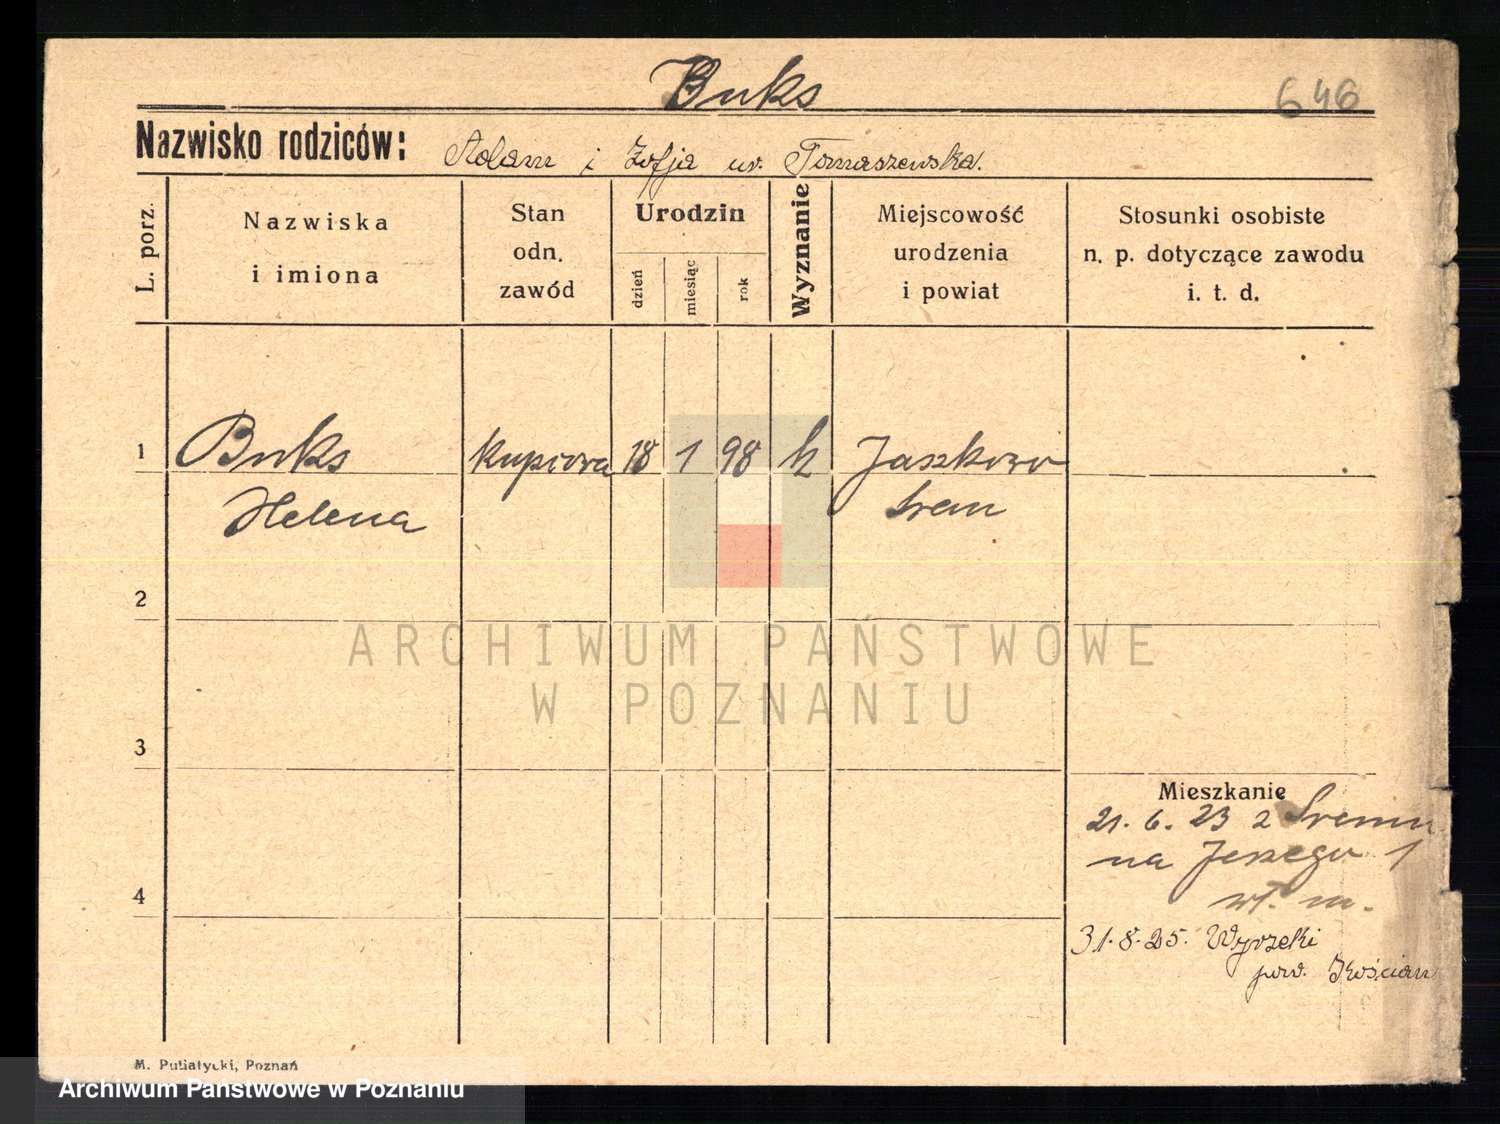 Buks
646
Nazwisko rodziców: Adam i Zofja ur. Tomaszewska.
L. porz.
Nazwiska
i imiona
Stan
odn.
zawód
Urodzin
dzień
miesiąc
rok
Wyznanie
Miejscowość
urodzenia
i powiat
Stosunki osobiste
n. p. dotyczące zawodu
i. t. d.
1 Buks 18 1 98 k Jaszkowo
Helena Srem
2
3
4
Mieszkanie
21. 6. 23 z Sremu
na Jerzego 1
wł. m.
31. 8. 25. Wyrzeki
pow. Kościan
M. Putiatycki, Poznań
ARCHIWUM PAŃSTWOWE
W POZNANIU
Archiwum Państwowe w Poznaniu